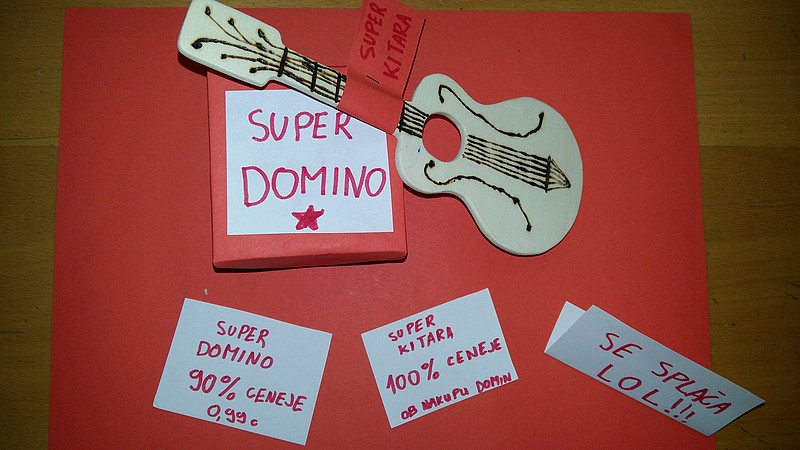 SUPER
KITARA
SUPER
DOMINO
SUPER
DOMINO
90% CENEJE
0,99€
SUPER
KITARA
100% CENEJE
OB NAKUPU DOMIN
SE SPLAČA
LOL!!!